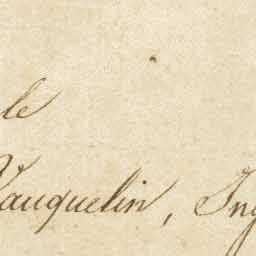 le
Vauquelin, Ing